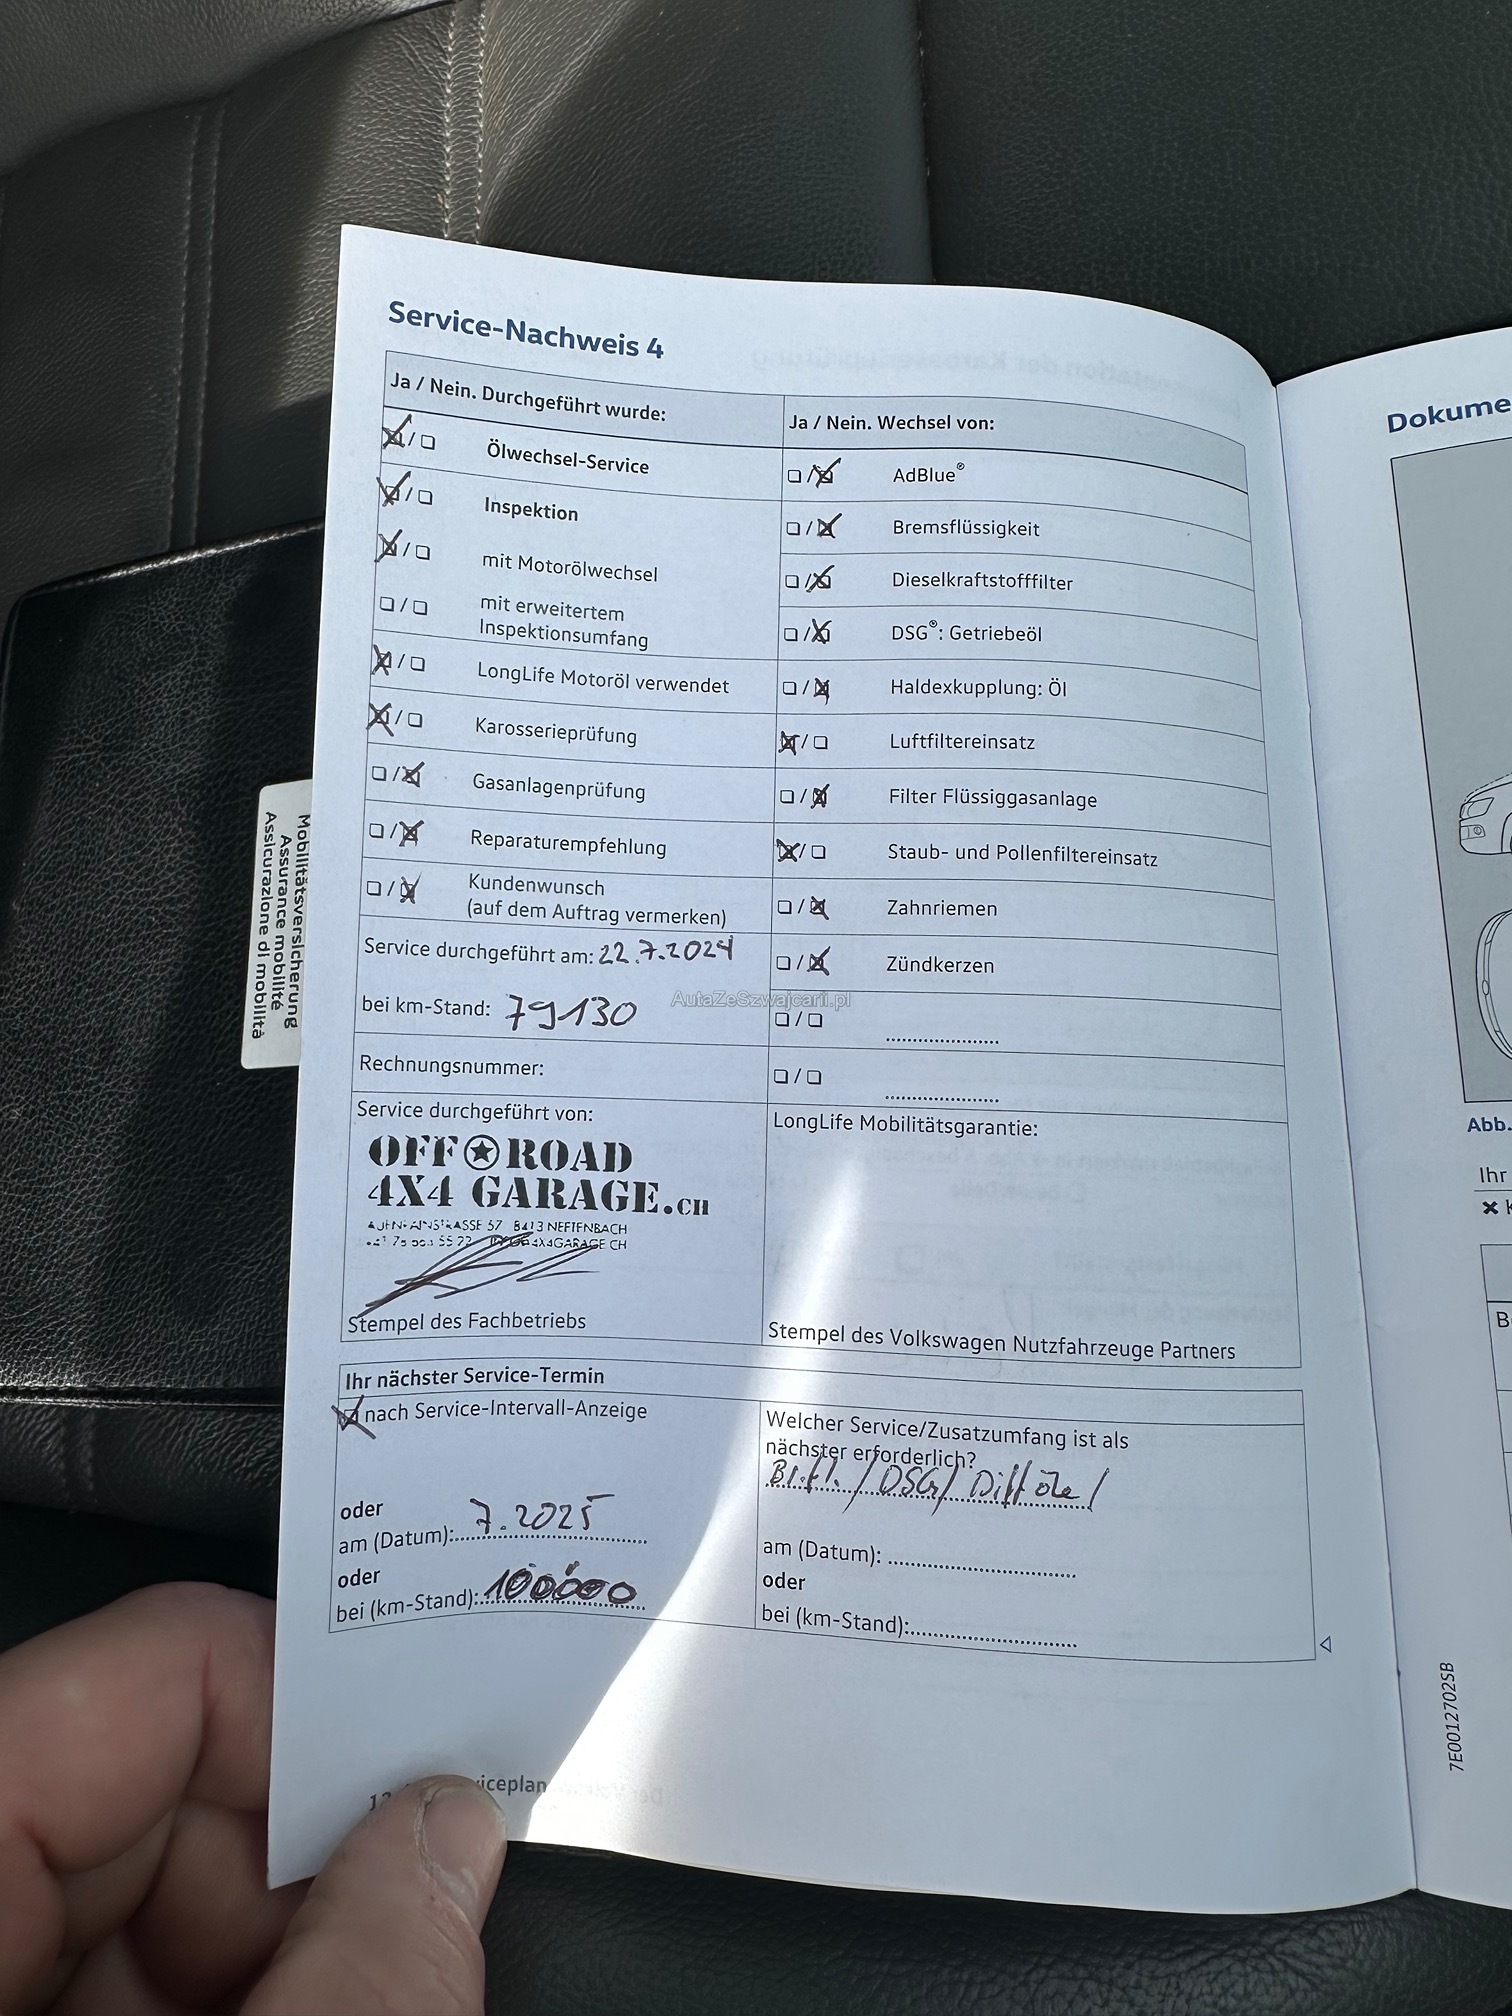 Service-Nachweis 4
Ja / Nein. Durchgeführt wurde:
Ölwechsel-Service
Inspektion
mit Motorölwechsel
mit erweitertem
Inspektionsumfang
LongLife Motoröl verwendet
Karosserieprüfung
Gasanlagenprüfung
Reparaturempfehlung
Kundenwunsch
(auf dem Auftrag vermerken)
Service durchgeführt am: 22.7.2024
bei km-Stand: 79130
Rechnungsnummer:
Service durchgeführt von:
OFF ROAD
4X4 GARAGE.CH
57 8413 NEFTENBACH
4X4GARAGE CH
Stempel des Fachbetriebs
Ja / Nein. Wechsel von:
AdBlue®
Bremsflüssigkeit
Dieselkraftstofffilter
DSG®: Getriebeöl
Haldexkupplung: Öl
Luftfiltereinsatz
Filter Flüssiggasanlage
Staub- und Pollenfiltereinsatz
Zahnriemen
Zündkerzen
LongLife Mobilitätsgarantie:
Stempel des Volkswagen Nutzfahrzeuge Partners
Ihr nächster Service-Termin
nach Service-Intervall-Anzeige
oder
am (Datum): 7.2025
oder
bei (km-Stand): 100000
Welcher Service/Zusatzumfang ist als
nächster erforderlich?
Br.fl. / DSG / Diff öle /
am (Datum):
oder
bei (km-Stand):
iceplan
Mobilitätsversicherung
Assurance mobilité
Assicurazione di mobilità
AutaZeSzwajcarii.pl
Dokume
Abb.
Ihr
7E0012702SB